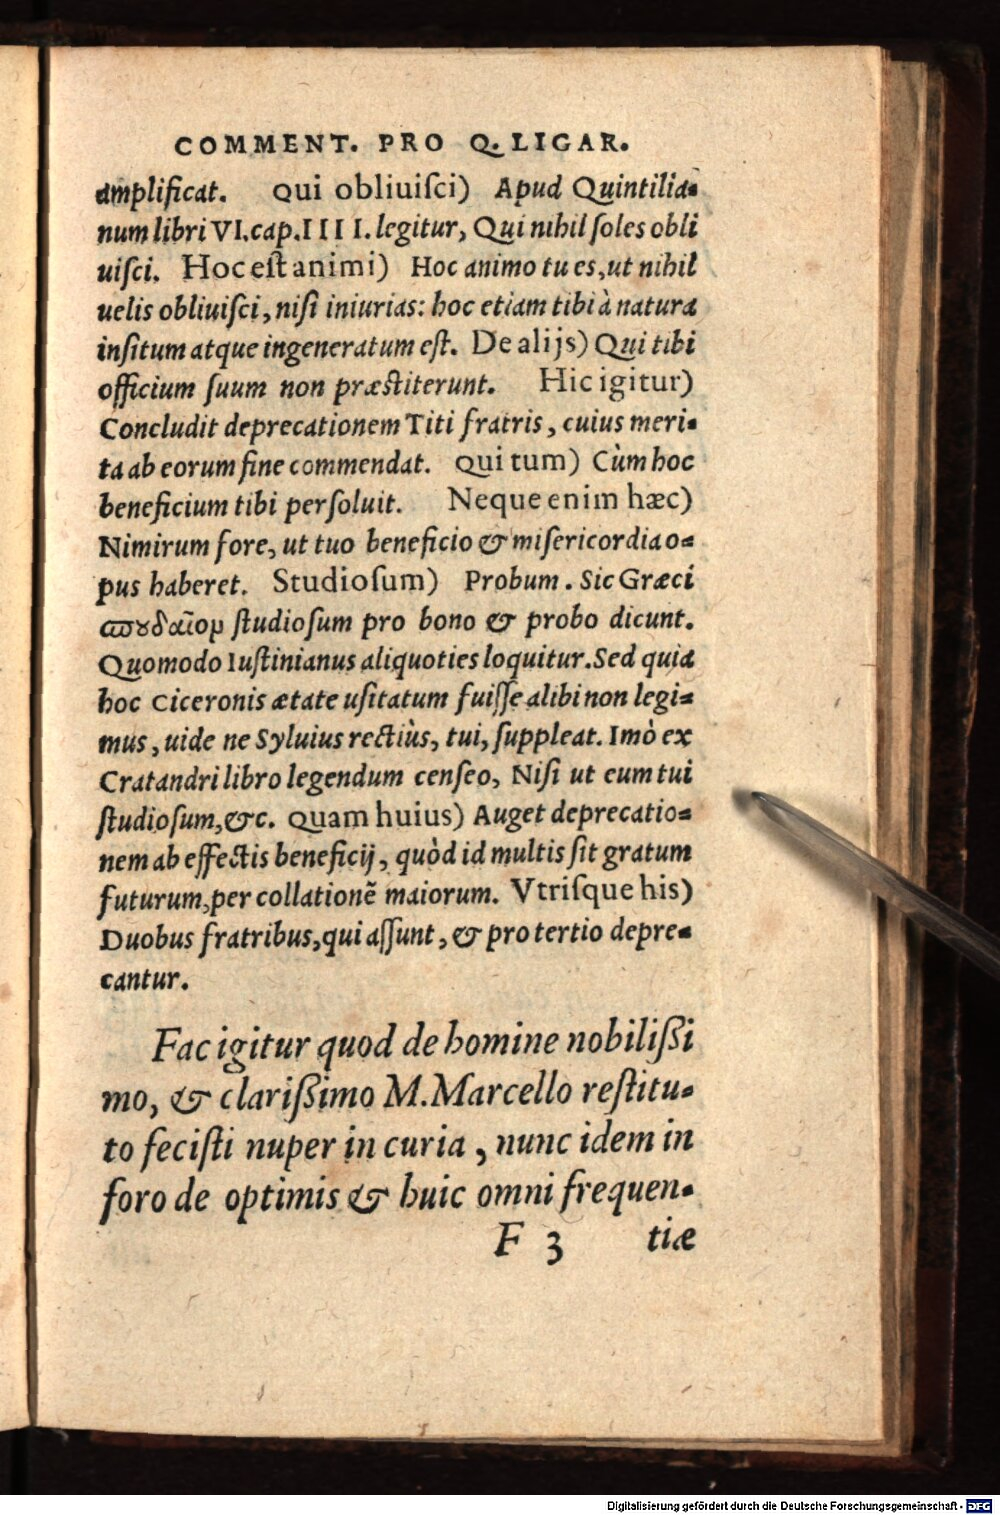 COMMENT. PRO Q. LIGAR.
amplificat. Qui obliuiſci) Apud Quintilia-
num libri VI. cap. IIII. legitur, Qui nihil ſoles obli
uiſci. Hoc eſt animi) Hoc animo tu es, ut nihil
uelis obliuiſci, niſi iniurias: hoc etiam tibi à natura
inſitum atque ingeneratum eſt. De alijs) Qui tibi
officium ſuum non præſtiterunt. Hic igitur)
Concludit deprecationem Titi fratris, cuius meri-
ta ab eorum fine commendat. Qui tum) Cùm hoc
beneficium tibi perſoluit. Neque enim hæc)
Nimirum fore, ut tuo beneficio & miſericordia o-
pus haberet. Studioſum) Probum. Sic Græci
ϖουδαῖον ſtudioſum pro bono & probo dicunt.
Quomodo Iuſtinianus aliquoties loquitur. Sed quia
hoc Ciceronis ætate uſitatum fuiſſe alibi non legi-
mus, uide ne Syluius rectiùs, tui, ſuppleat. Imò ex
Cratandri libro legendum cenſeo, Niſi ut eum tui
ſtudioſum, &c. Quam huius) Auget deprecatio-
nem ab effectis beneficij, quòd id multis ſit gratum
futurum, per collationẽ maiorum. Vtriſque his)
Duobus fratribus, qui aſſunt, & pro tertio depre-
cantur.
Fac igitur quod de homine nobilißi
mo, & clarißimo M. Marcello reſtitu-
to feciſti nuper in curia, nunc idem in
foro de optimis & huic omni frequen-
F 3 tiæ
Digitalisierung gefördert durch die Deutsche Forschungsgemeinschaft - DFG